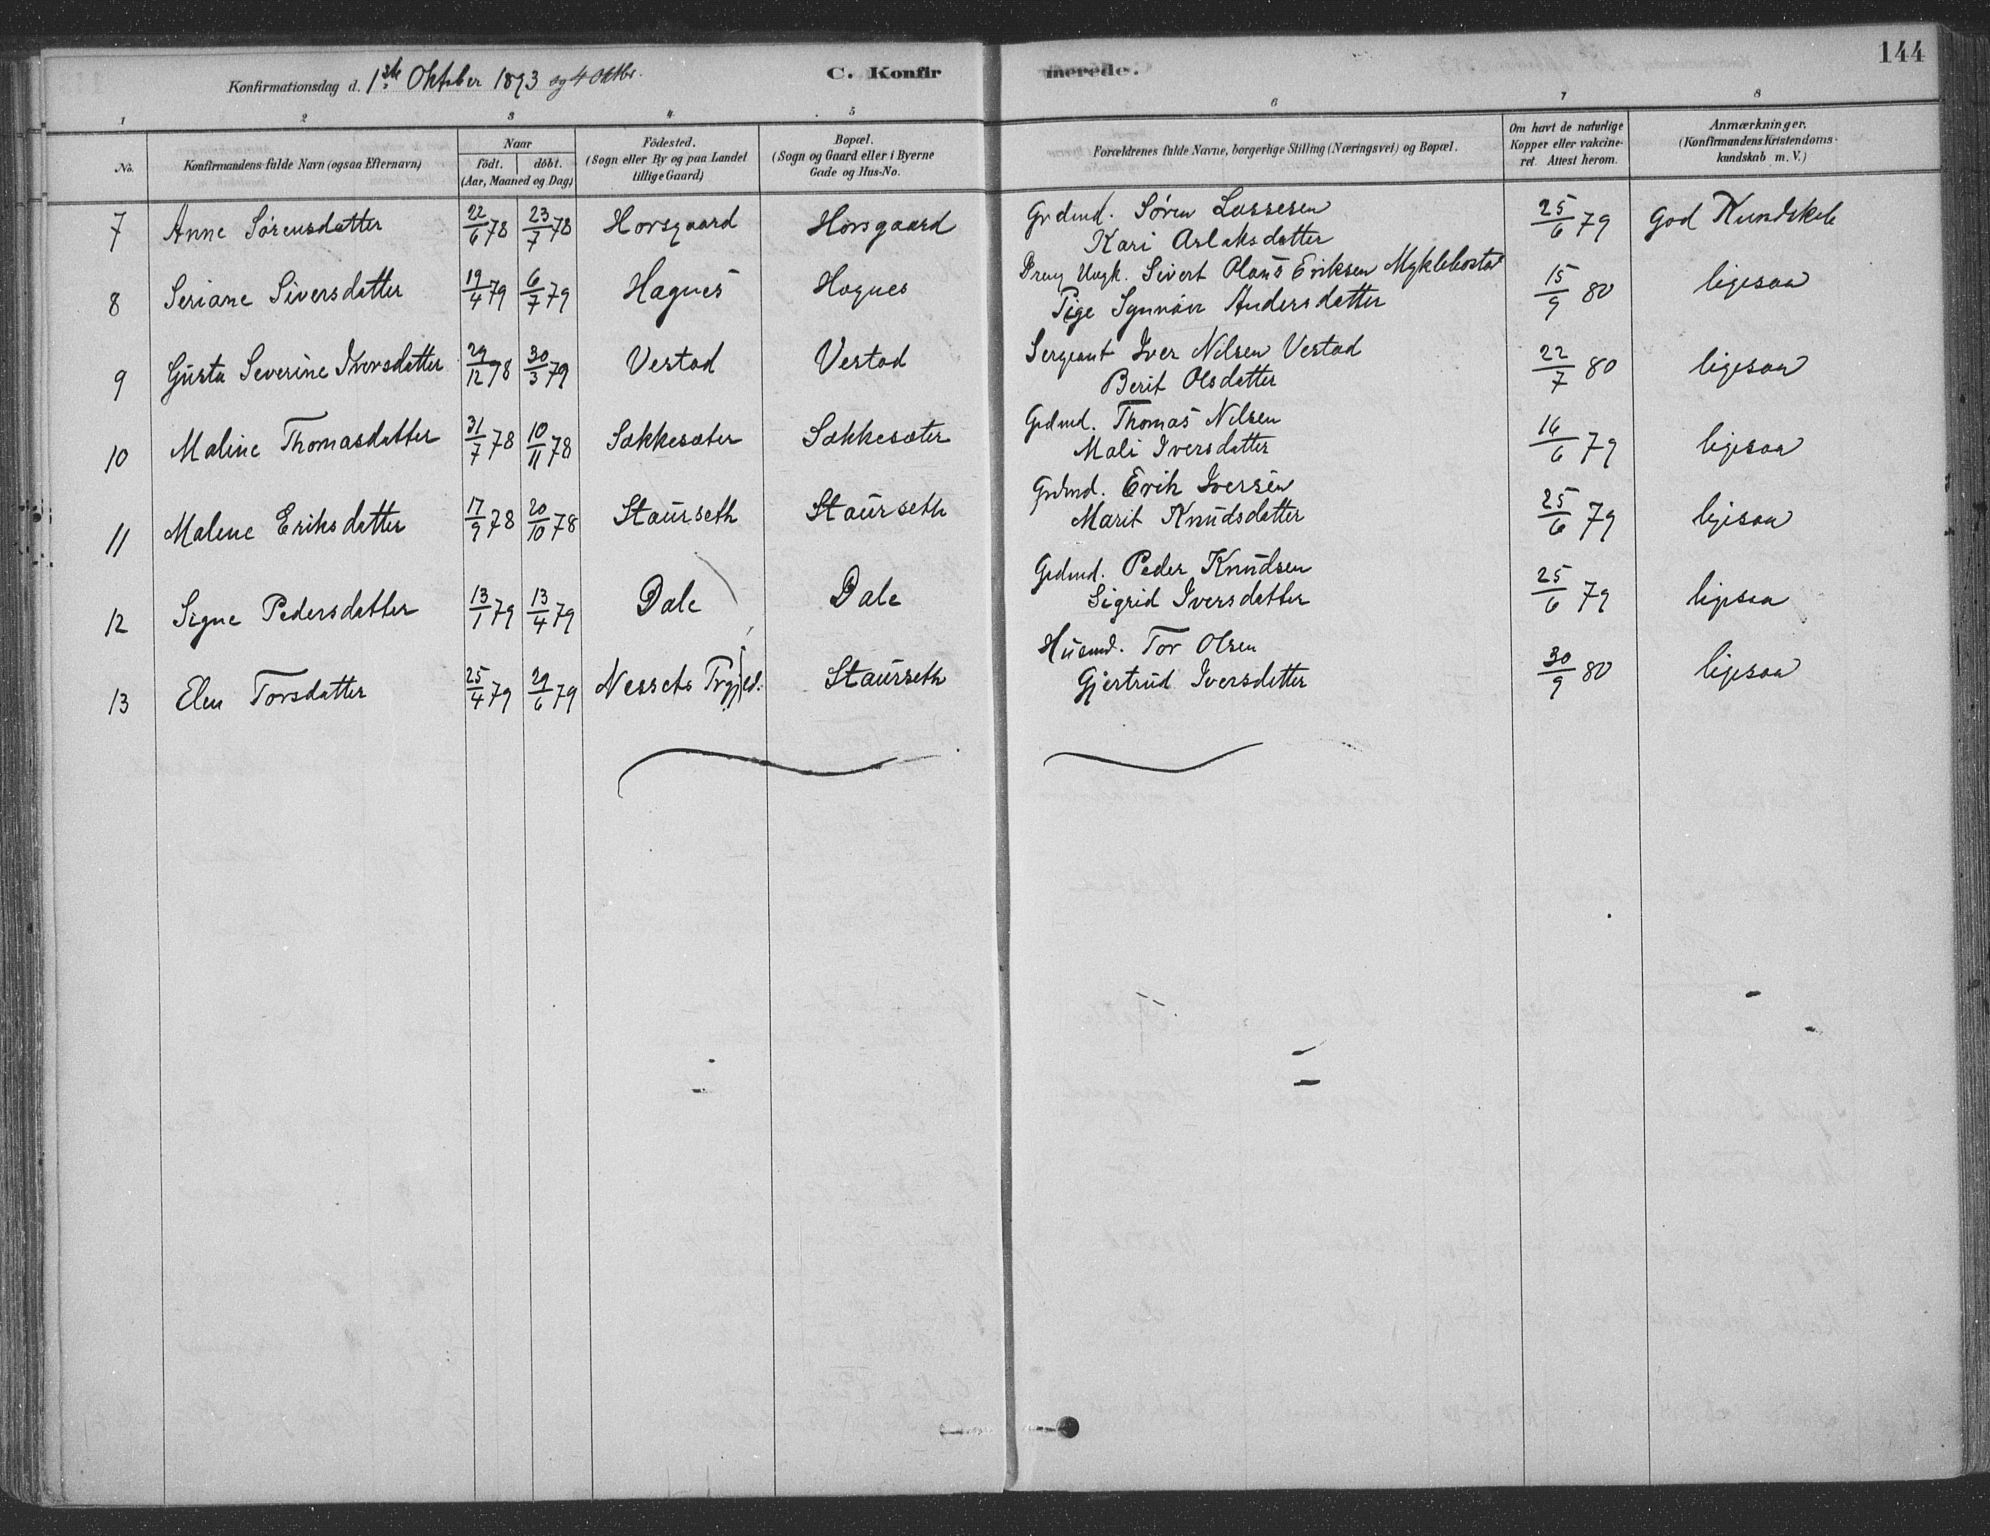 144
Konfirmationsdag d. 1ste Oktober 1893 og 4 Oktbr. C. Konfirmerede.
1 2 3 4 5 6 7 8
No. Konfirmandens fulde Navn (ogsaa Efternavn) Naar födt. döbt. (Aar, Maaned og Dag) Födested. (Sogn eller By og paa Landet tillige Gaard) Bopæl. (Sogn og Gaard eller i Byerne Gade og Hus-No. Forældrenes fulde Navne, borgerlige Stilling (Næringsvei) og Bopæl. Om havt de naturlige Kopper eller vakcineret. Attest herom. Anmærkninger. (Konfirmandens Kristendomskundskab m. V.)
7 Anne Sørensdatter 22/6 78 23/7 78 Horsgaard Horsgaard Grdmd. Søren Lassesen
Kari Aslaksdatter 25/6 79 God Kundskab
8 Seriane Siversdatter 19/4 79 6/7 79 Hagnes Hagnes Ungk. Sivert Olaus Eriksen Myklebostad
Pige Synnøve Andersdatter 15/9 80 ligesaa
9 Gusta Severine Iversdatter 29/12 78 30/3 79 Vestad Vestad Sergeant Iver Nilsen Vestad
Berit Olsdatter 22/7 80 ligesaa
10 Maline Thomasdatter 31/7 78 10/11 78 Sækkesæter Sækkesæter Grdmd. Thomas Nilsen
Mali Iversdatter 16/6 79 ligesaa
11 Malene Eriksdatter 17/9 78 20/10 78 Staurseth Staurseth Grdmd. Erik Iversen
Marit Knudsdatter 25/6 79 ligesaa
12 Signe Pedersdatter 13/1 79 13/4 79 Dale Dale Grdmd. Peder Knudsen
Sigrid Iversdatter 25/6 79 ligesaa
13 Elen Torsdatter 25/4 79 29/6 79 Nessets Prgjeld. Staurseth Husmd. Tor Olsen
Gjertrud Iversdatter 30/9 80 ligesaa